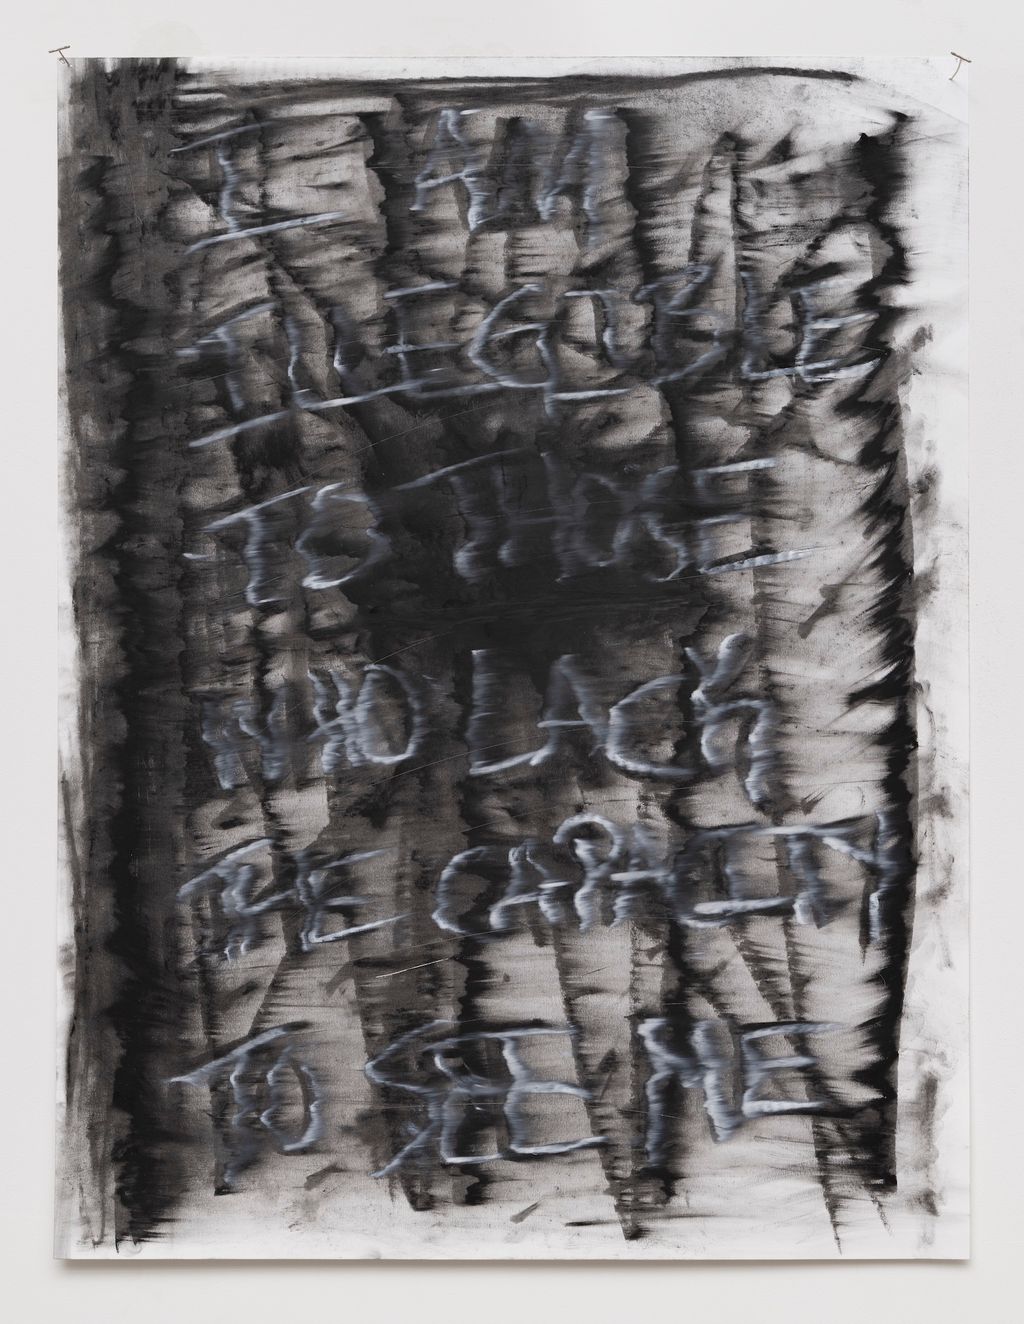 I AM
ILLEGIBLE
TO THOSE
WHO LACK
THE CAPACITY
TO SEE ME